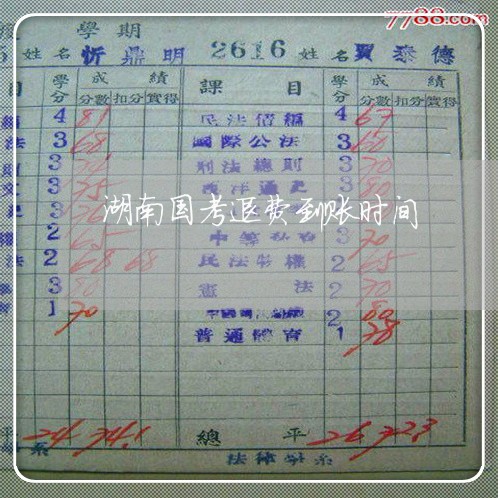 7788.com
學期
姓名 忻鼎明 2616 姓名 賈泰德
目 學分 成績 課目 學分 成績
分數 扣分 實得 分數 扣分 實得
4 81 民法債編 4 67
法 3 68 國際公法 3 60
3 刑法總則 3 70
3 75 西洋通史 3 80
3 76 3
湖南国考退费到账时间
2 65 3 70
法 2 68 68 民法物權 2 65
3 80 憲法 2 70
1 70 2 80
普通體育 1 78
平 24 74.1 總平 26 72.3
系 法律學系